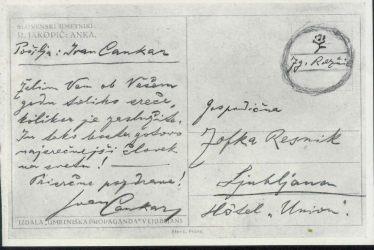 SLOVENSKI UMETNIKI
R. JAKOPIČ: ANKA.
Pošilja: Ivan Cankar
Želim Vam ob Vašem
godu toliko sreče,
kolikor je zaslužite.
In tako boste gotovo
najsrečnejši človek
na svetu! —
Prisrčne pozdrave!
Ivan
Cankar
Gospodična
Zofka Resnik
Ljubljana
Hôtel „Union".
IZDALA „UMETNIŠKA PROPAGANDA" V LJUBLJANI